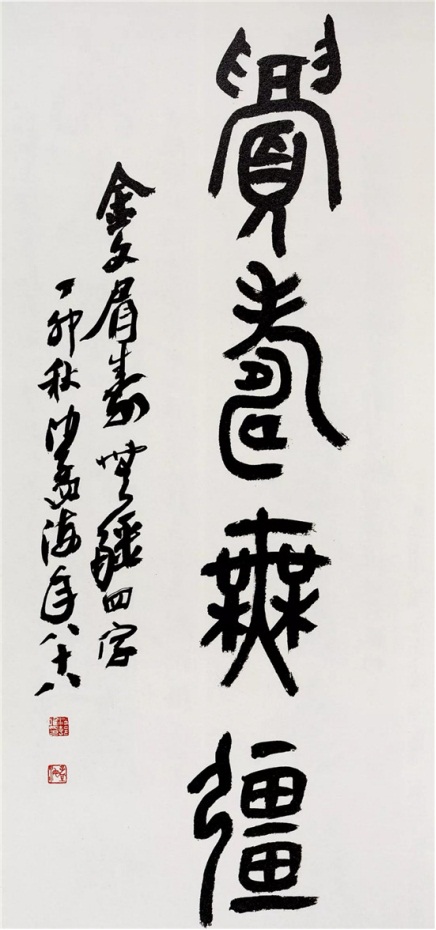 眉壽無疆
金文眉壽無疆四字
丁卯秋沙孟海年八十八